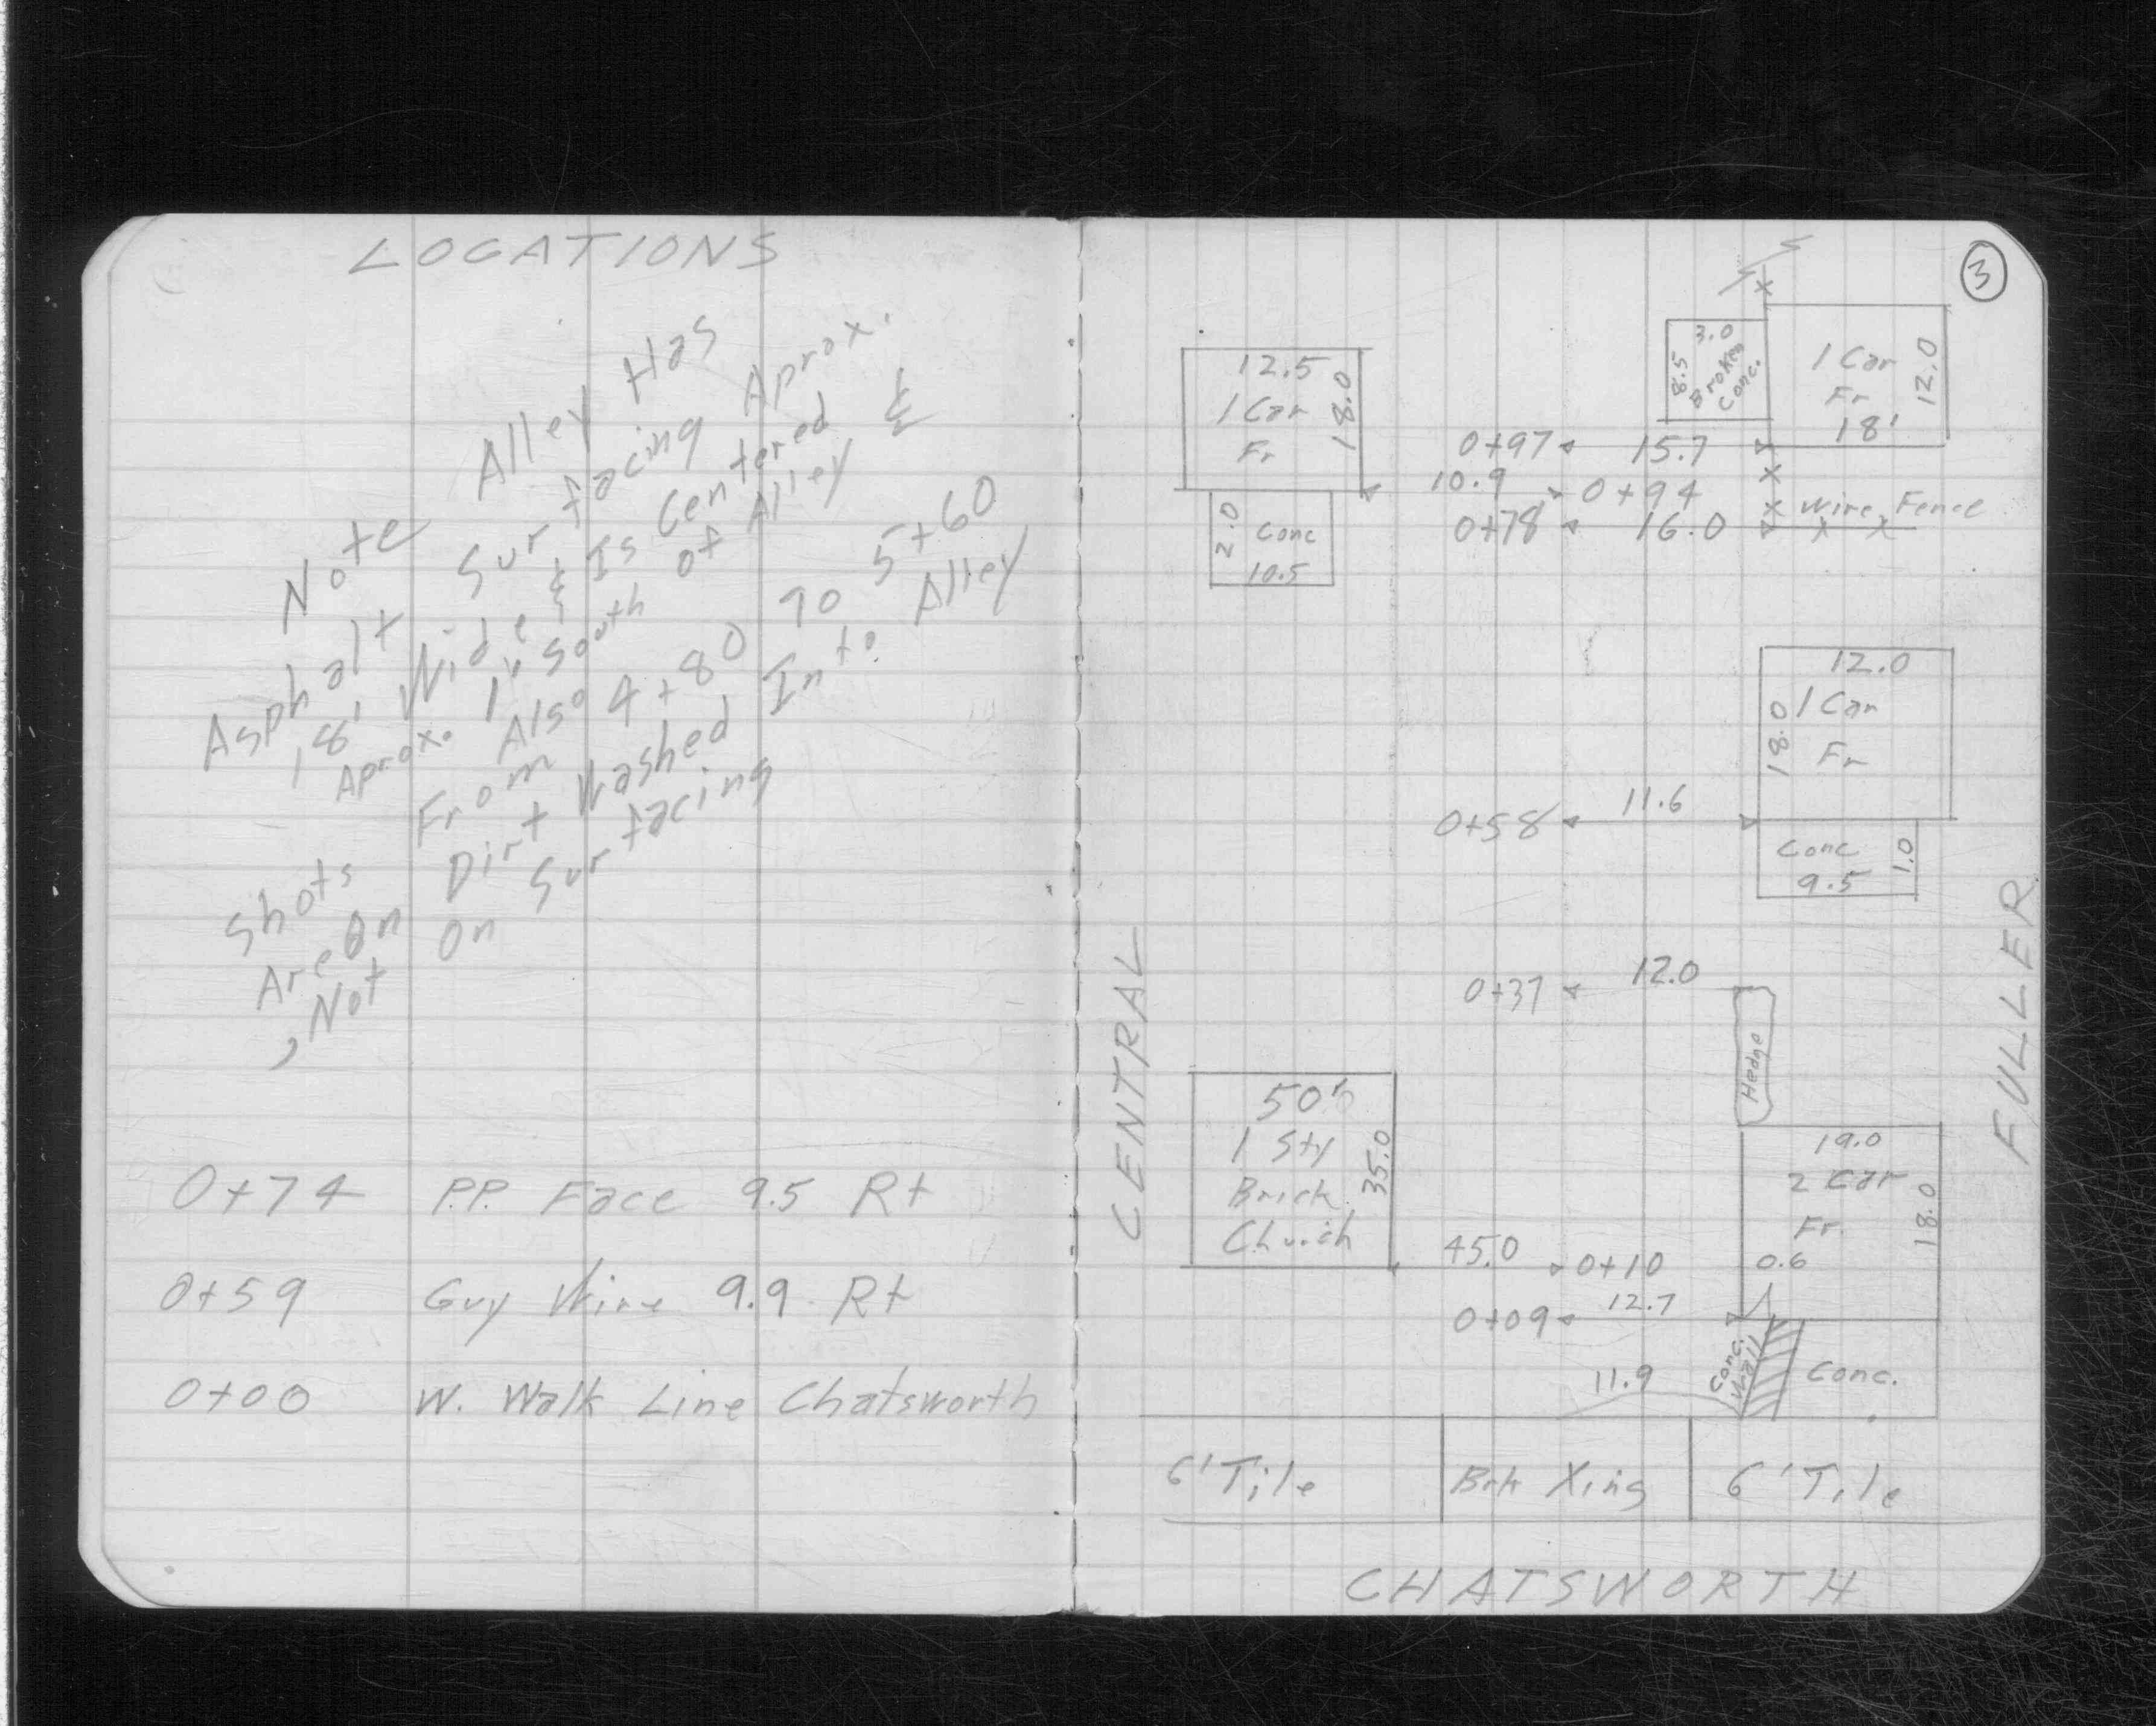 LOCATIONS
Note Alley Has
Asphalt Surfacing Aprox.
18' Wide & Is Centered
Aprox. 1' South of Alley ℄
Also
From 4+80 To 5+60
Shots Are On Dirt Washed Into Alley
, Not On Surfacing
0+74 P.P. Face 9.5 Rt
0+59 Guy Wire 9.9 Rt
0+00 W. Walk Line Chatsworth
3
3.0
8.5
Broken
Conc.
1 Car
Fr
18'
12.0
12.5
1 Car
Fr
18.0
0+97 15.7
10.9 0+94
0+78 16.0
x
x
x
x
Wire Fence
x x
2.0
Conc
10.5
12.0
1 Car
Fr
18.0
0+58 11.6
Conc
9.5
1.0
0+37 12.0
Hedge
CENTRAL
FULLER
1 Sty
Brick
Church
35.0
19.0
2 Car
Fr.
18.0
0.6
45.0 0+10
0+09 12.7
11.9
Conc.
Wall
Conc.
6' Tile
Brk Xing
6' Tile
CHATSWORTH